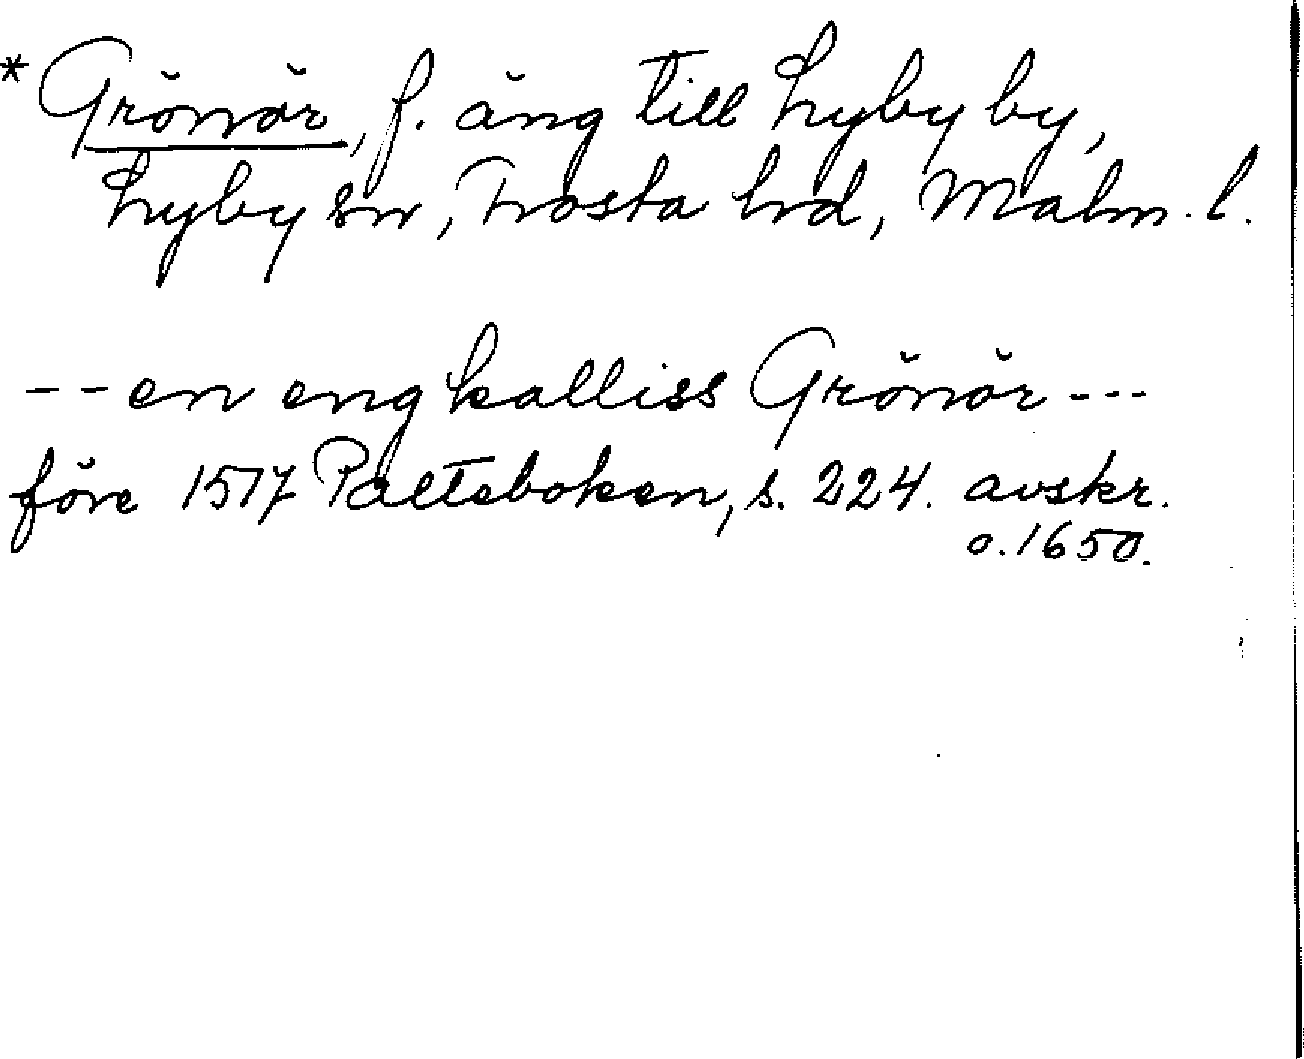 * Grönör, f. äng till Lyby by,
Lyby sn, Frosta hd, Malm. l.
-- en eng kalliss Grönör ---
före 1517 Palteboken, s. 224. avskr.
o. 1650.